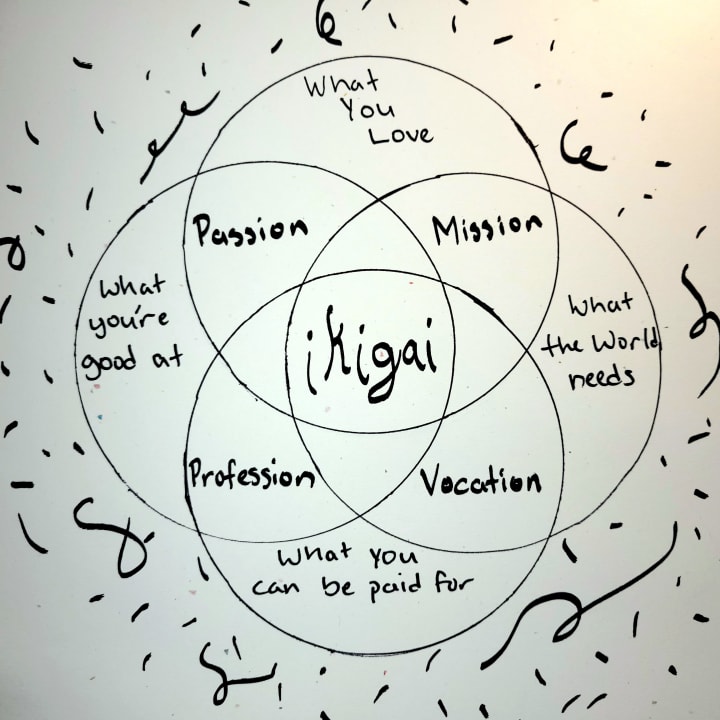 What
You
Love
Passion
Mission
What
you're
good at
ikigai
What
the World
needs
Profession
Vocation
What you
can be paid for